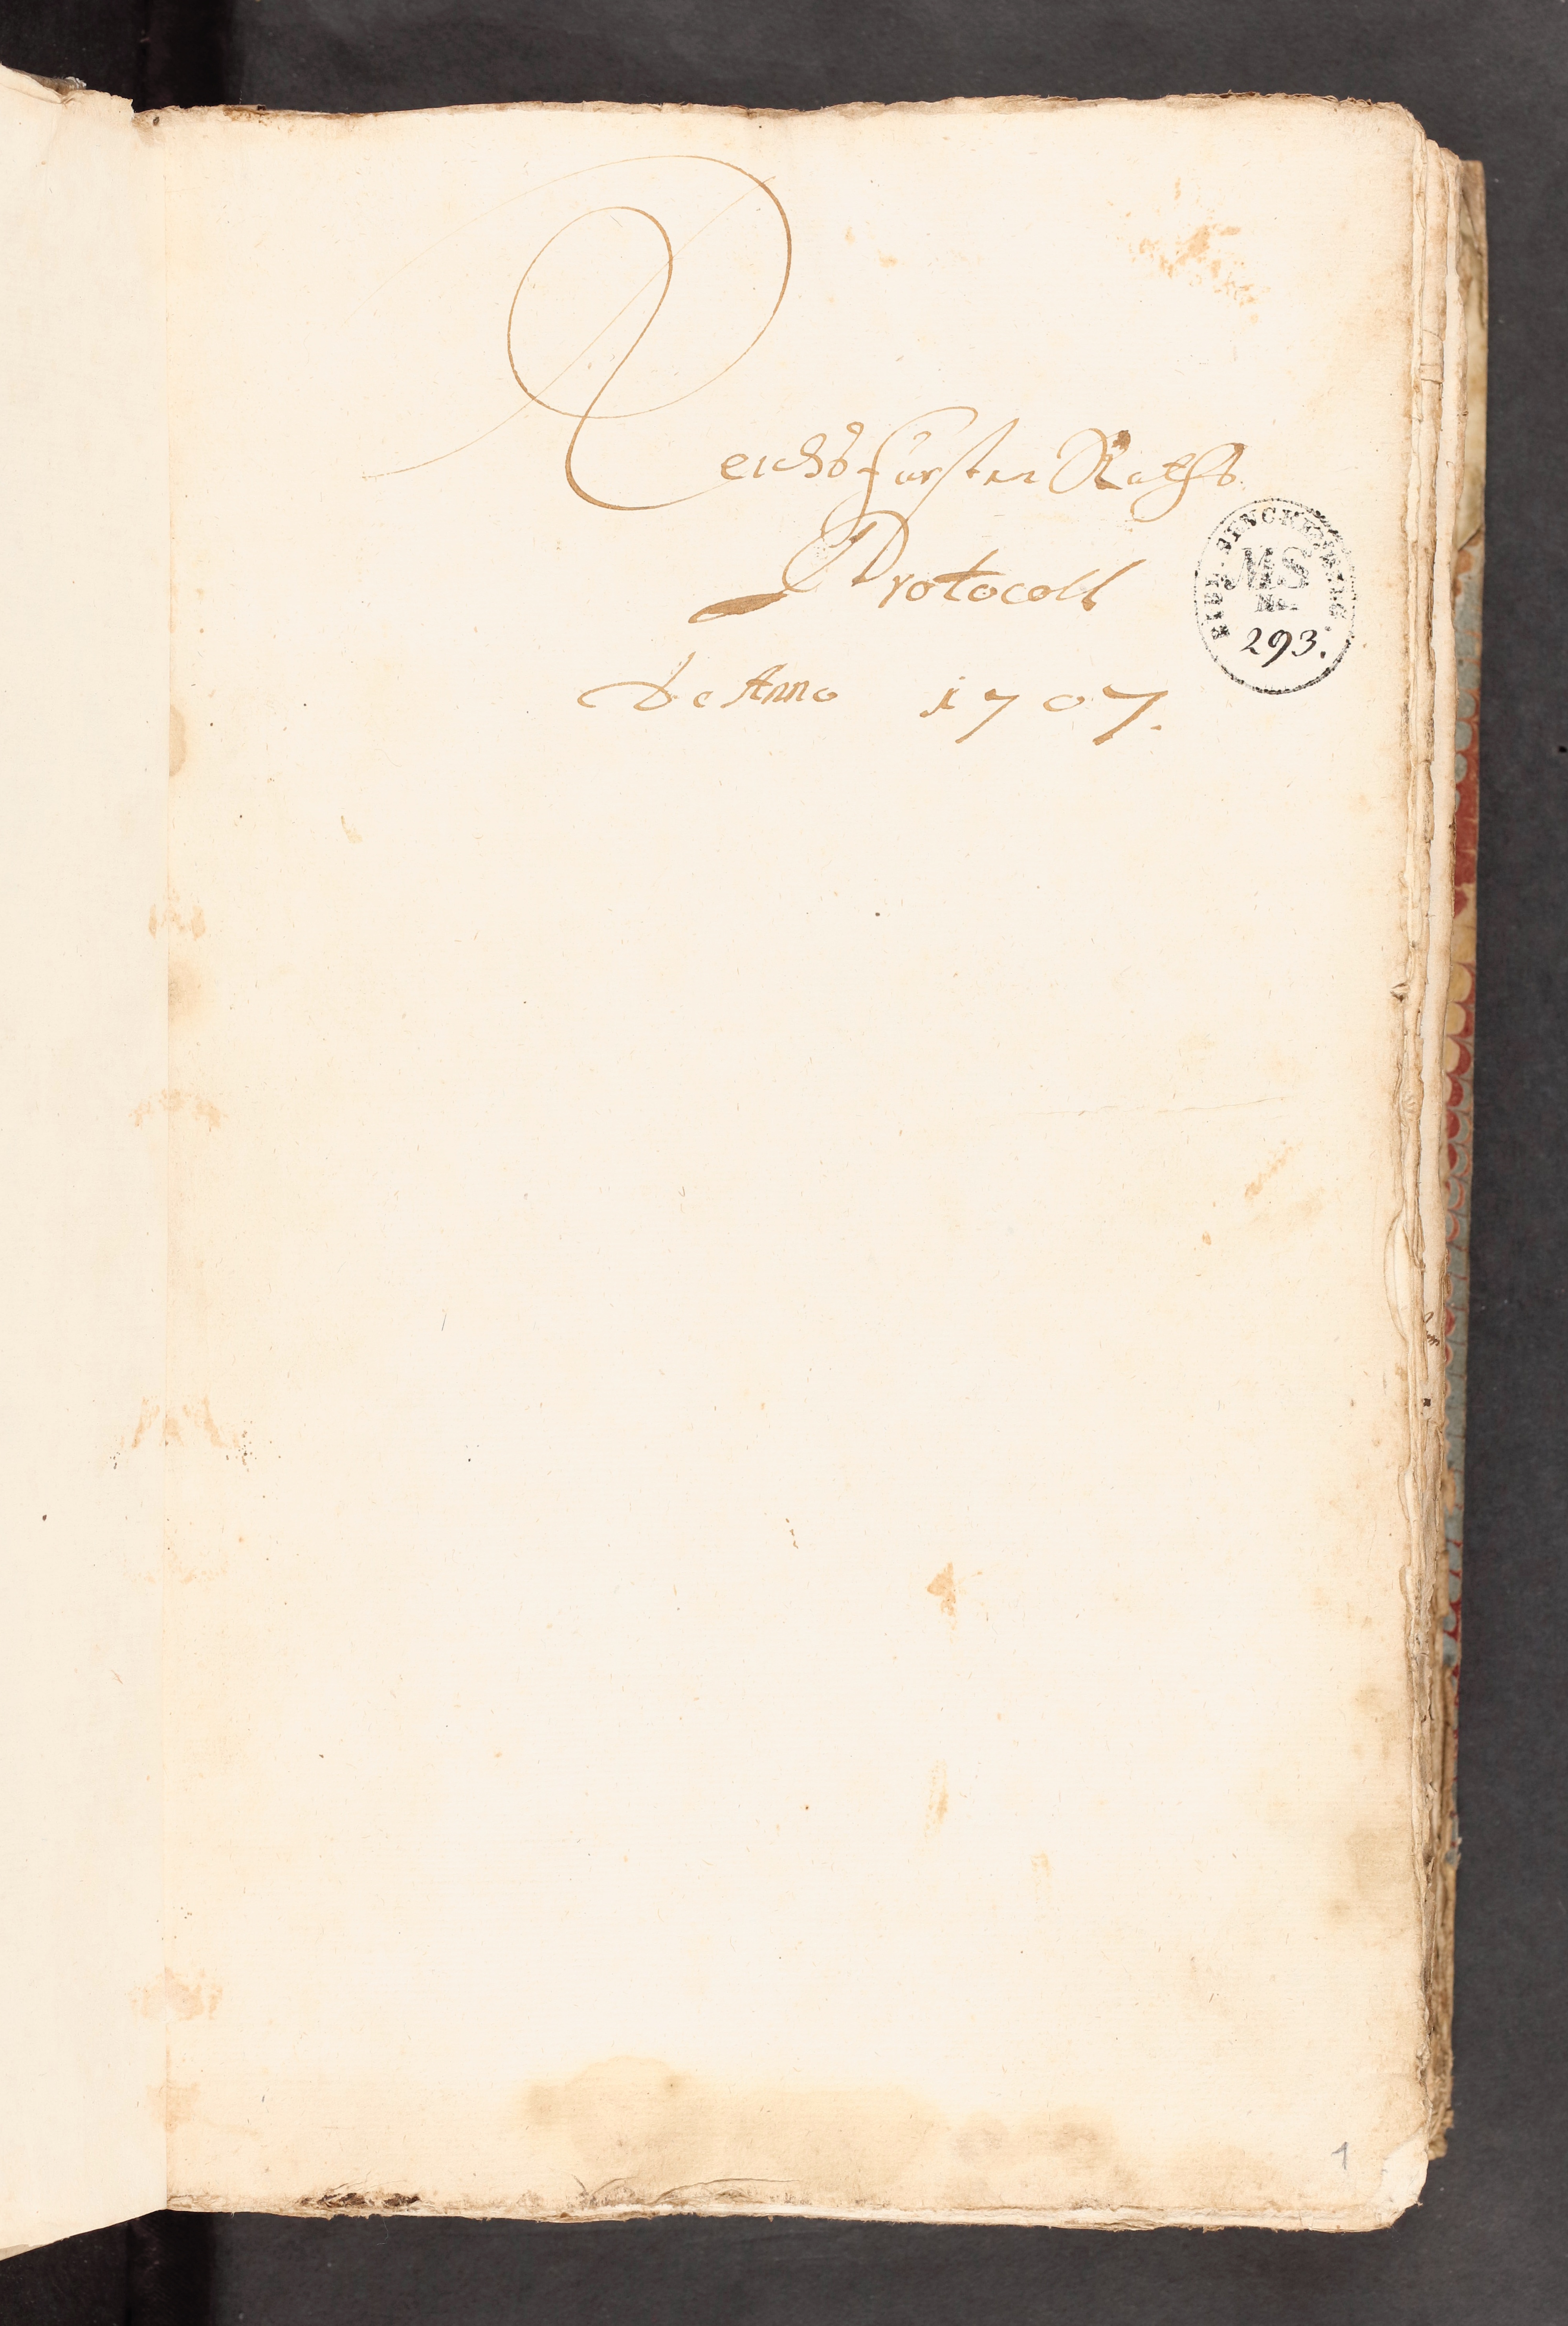 Reichs Fürsten Raths
Protocoll
de Anno 1707.
BIBL. SENCKENBERG.
MS
No.
293.
1